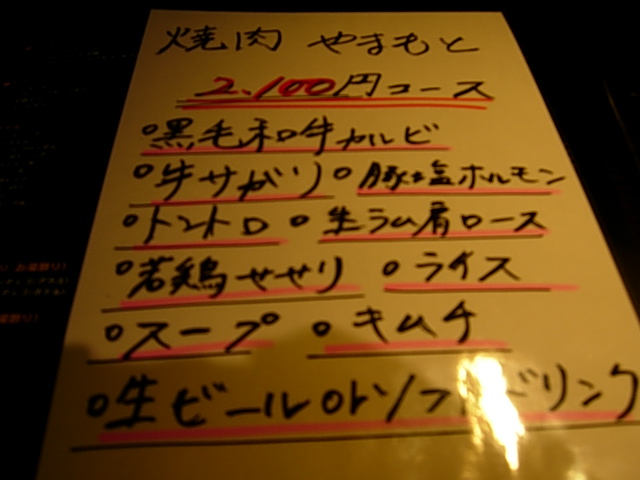 焼肉 やまもと
2.100円コース
°黒毛和牛カルビ
°牛サガリ °豚塩ホルモン
°トントロ °生ラム肩ロース
°若鶏せせり °ライス
°スープ °キムチ
°生ビールorソフトドリンク